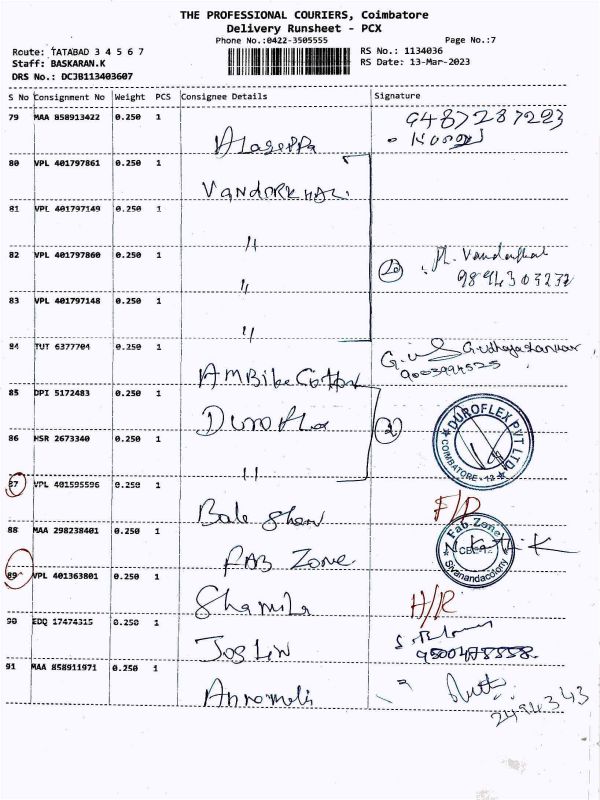 THE PROFESSIONAL COURIERS, Coimbatore
Delivery Runsheet - PCX
Phone No.:0422-3505555 Page No.:7
Route: TATABAD 3 4 5 6 7 RS No.: 1134036
Staff: BASKARAN.K RS Date: 13-Mar-2023
DRS No.: DCJB113403607
S No Consignment No Weight PCS Consignee Details Signature
79 MAA 858913422 0.250 1 9487287223
80 VPL 401797861 0.250 1
81 VPL 401797149 0.250 1 "
82 VPL 401797860 0.250 1 "
83 VPL 401797148 0.250 1 "
84 TUT 6377704 0.250 1 G. Udhayashankar
9003994525
85 DPI 5172483 0.250 1 Duroflex DUROFLEX PVT LTD COIMBATORE - 12
86 HSR 2673340 0.250 1 "
87 VPL 401595596 0.250 1 F/D
88 MAA 298238401 0.250 1 FAB ZONE Fab Zone Sivanandacolony
89 VPL 401363801 0.250 1 Sharmila H/R
90 EDQ 17474315 0.250 1 Joslin
91 MAA 858911971 0.250 1